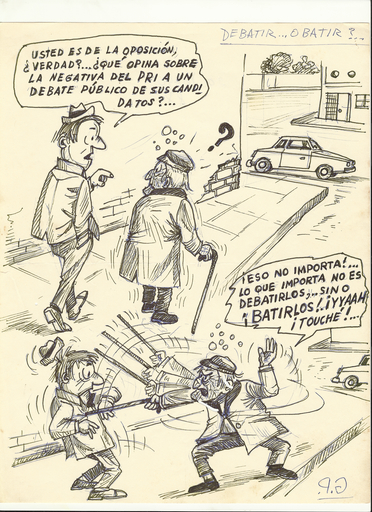 DEBATIR...O BATIR?...
USTED ES DE LA OPOSICIÓN,
¿VERDAD?...¿QUÉ OPINA SOBRE
LA NEGATIVA DEL PRI A UN
DEBATE PÚBLICO DE SUS CANDI
DATOS?...
?
¡ESO NO IMPORTA!...
LO QUE IMPORTA NO ES
DEBATIRLOS,... SINO
¡BATIRLOS!.¡YYAAH
¡TOUCHÉ!...